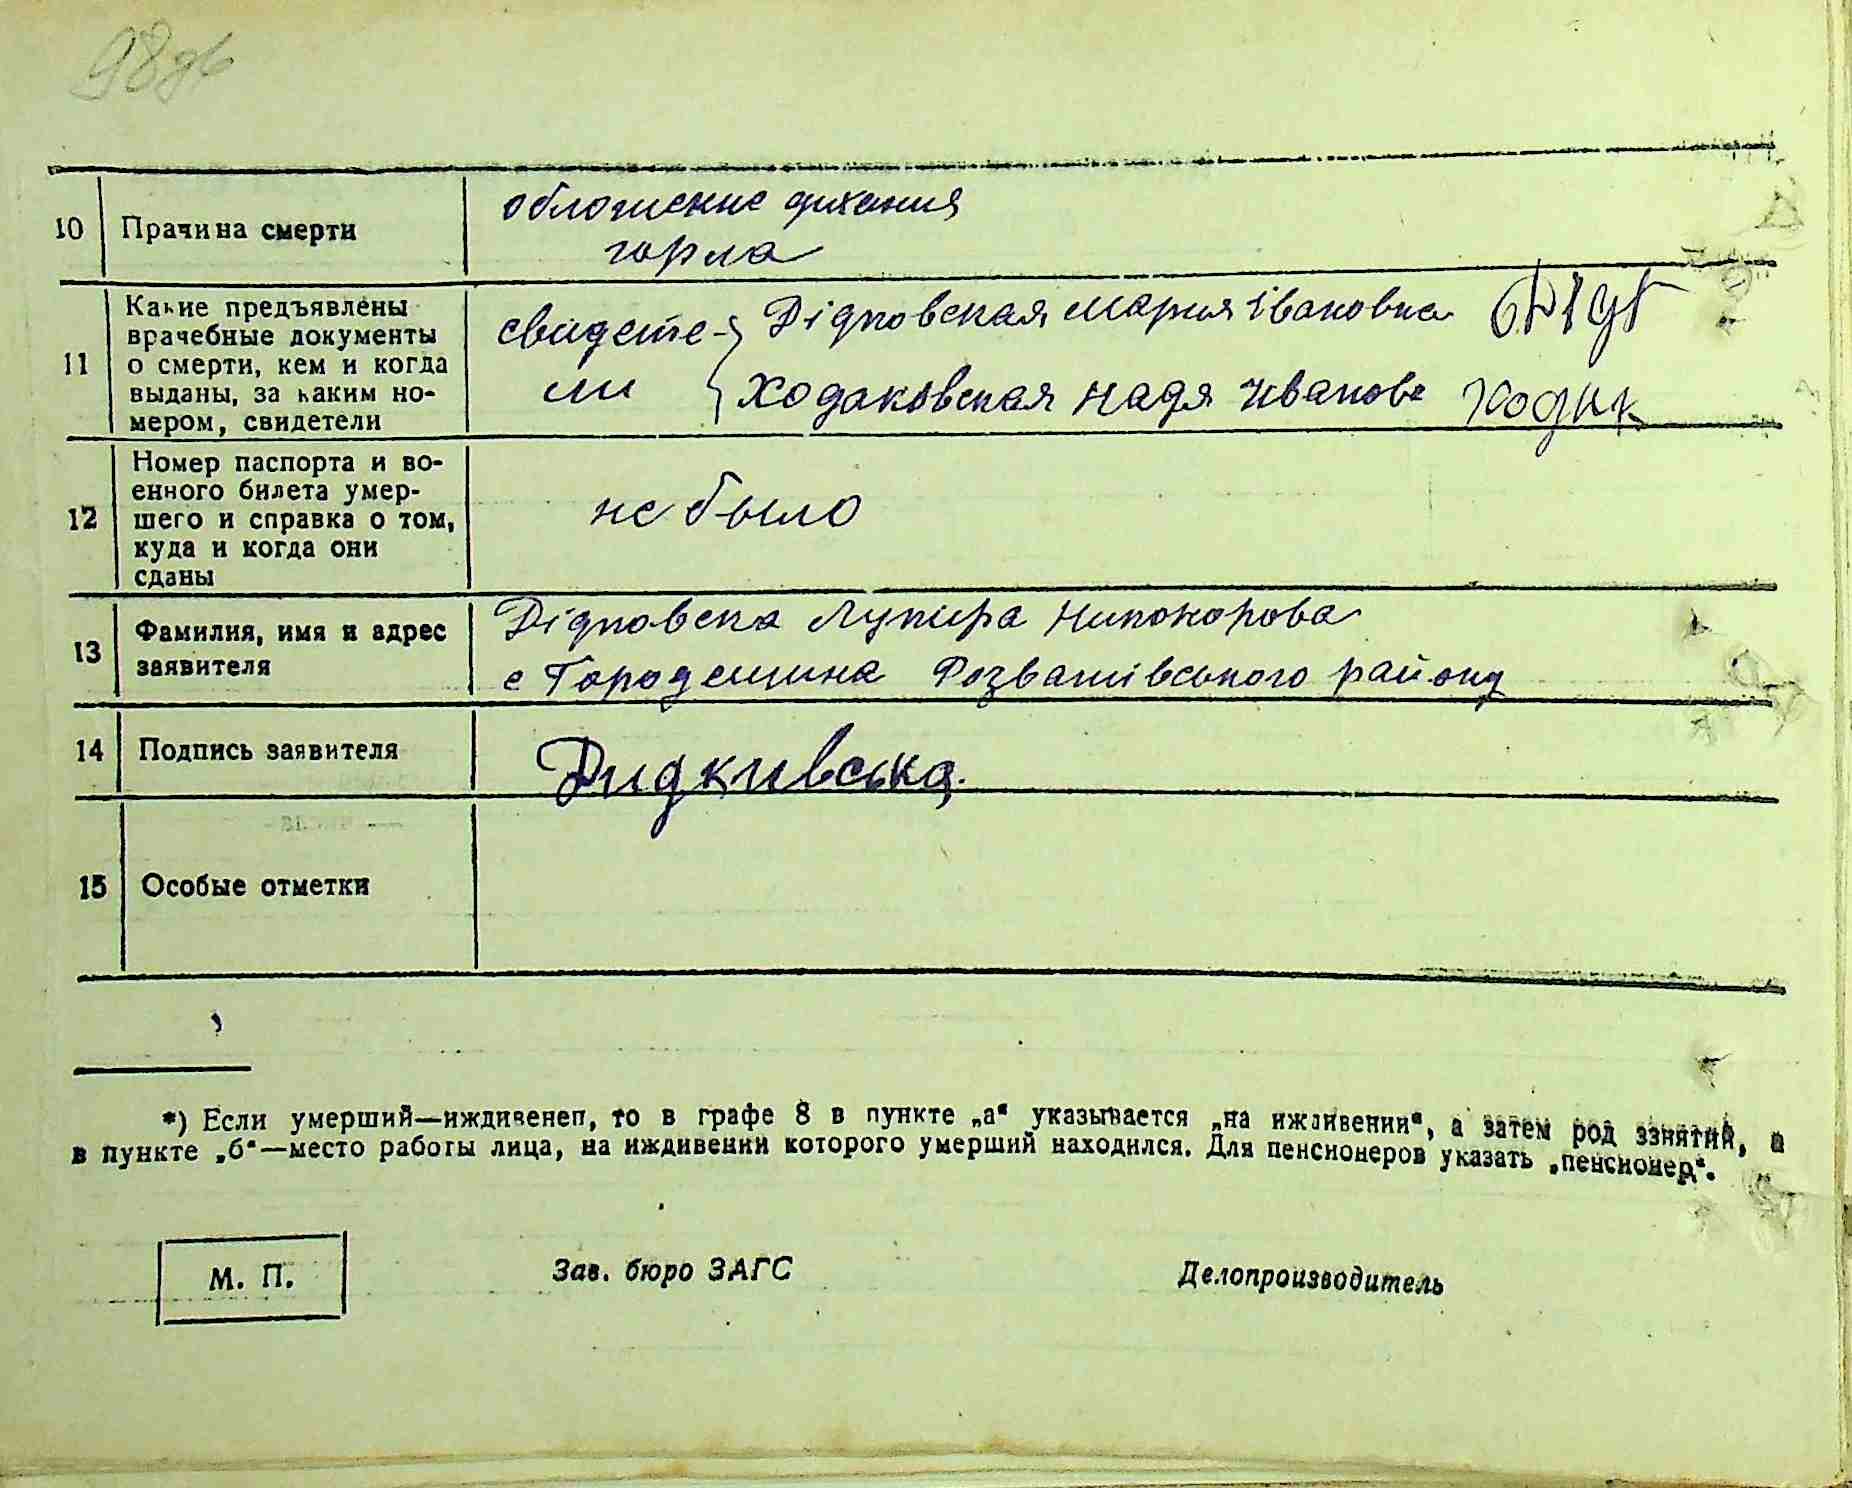 98
10 Прачина смерти
обложение дихания
горла
11 Какие предъявлены врачебные документы о смерти, кем и когда выданы, за каким но-мером, свидетели
свидете-
ли
Дідковская Мария Івановна
Ходаковская Надя Иванов
12 Номер паспорта и во-
енного билета умер-
шего и справка о том,
куда и когда они
сданы
не было
13 Фамилия, имя и адрес
заявителя
Дідковска Лукира Никонорова
с Городещина Розважівського району
14 Подпись заявителя
Дидкивська.
15 Особые отметки
*) Если умерший—иждивенец, то в графе 8 в пункте „а“ указывается „на иждивении“, а затем род занятий, а
в пункте „б“—место работы лица, на иждивении которого умерший находился. Для пенсионеров указать „пенсионер“.
М. П.
Зав. бюро ЗАГС
Делопроизводитель